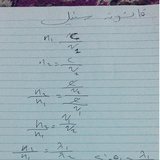 قانون سنل
n₁ = c/v₁
n₂ = c/v₂
n₂/n₁ = (c/v₂)/(c/v₁)
n₂/n₁ = v₁/v₂
n₂/n₁ = λ₁/λ₂